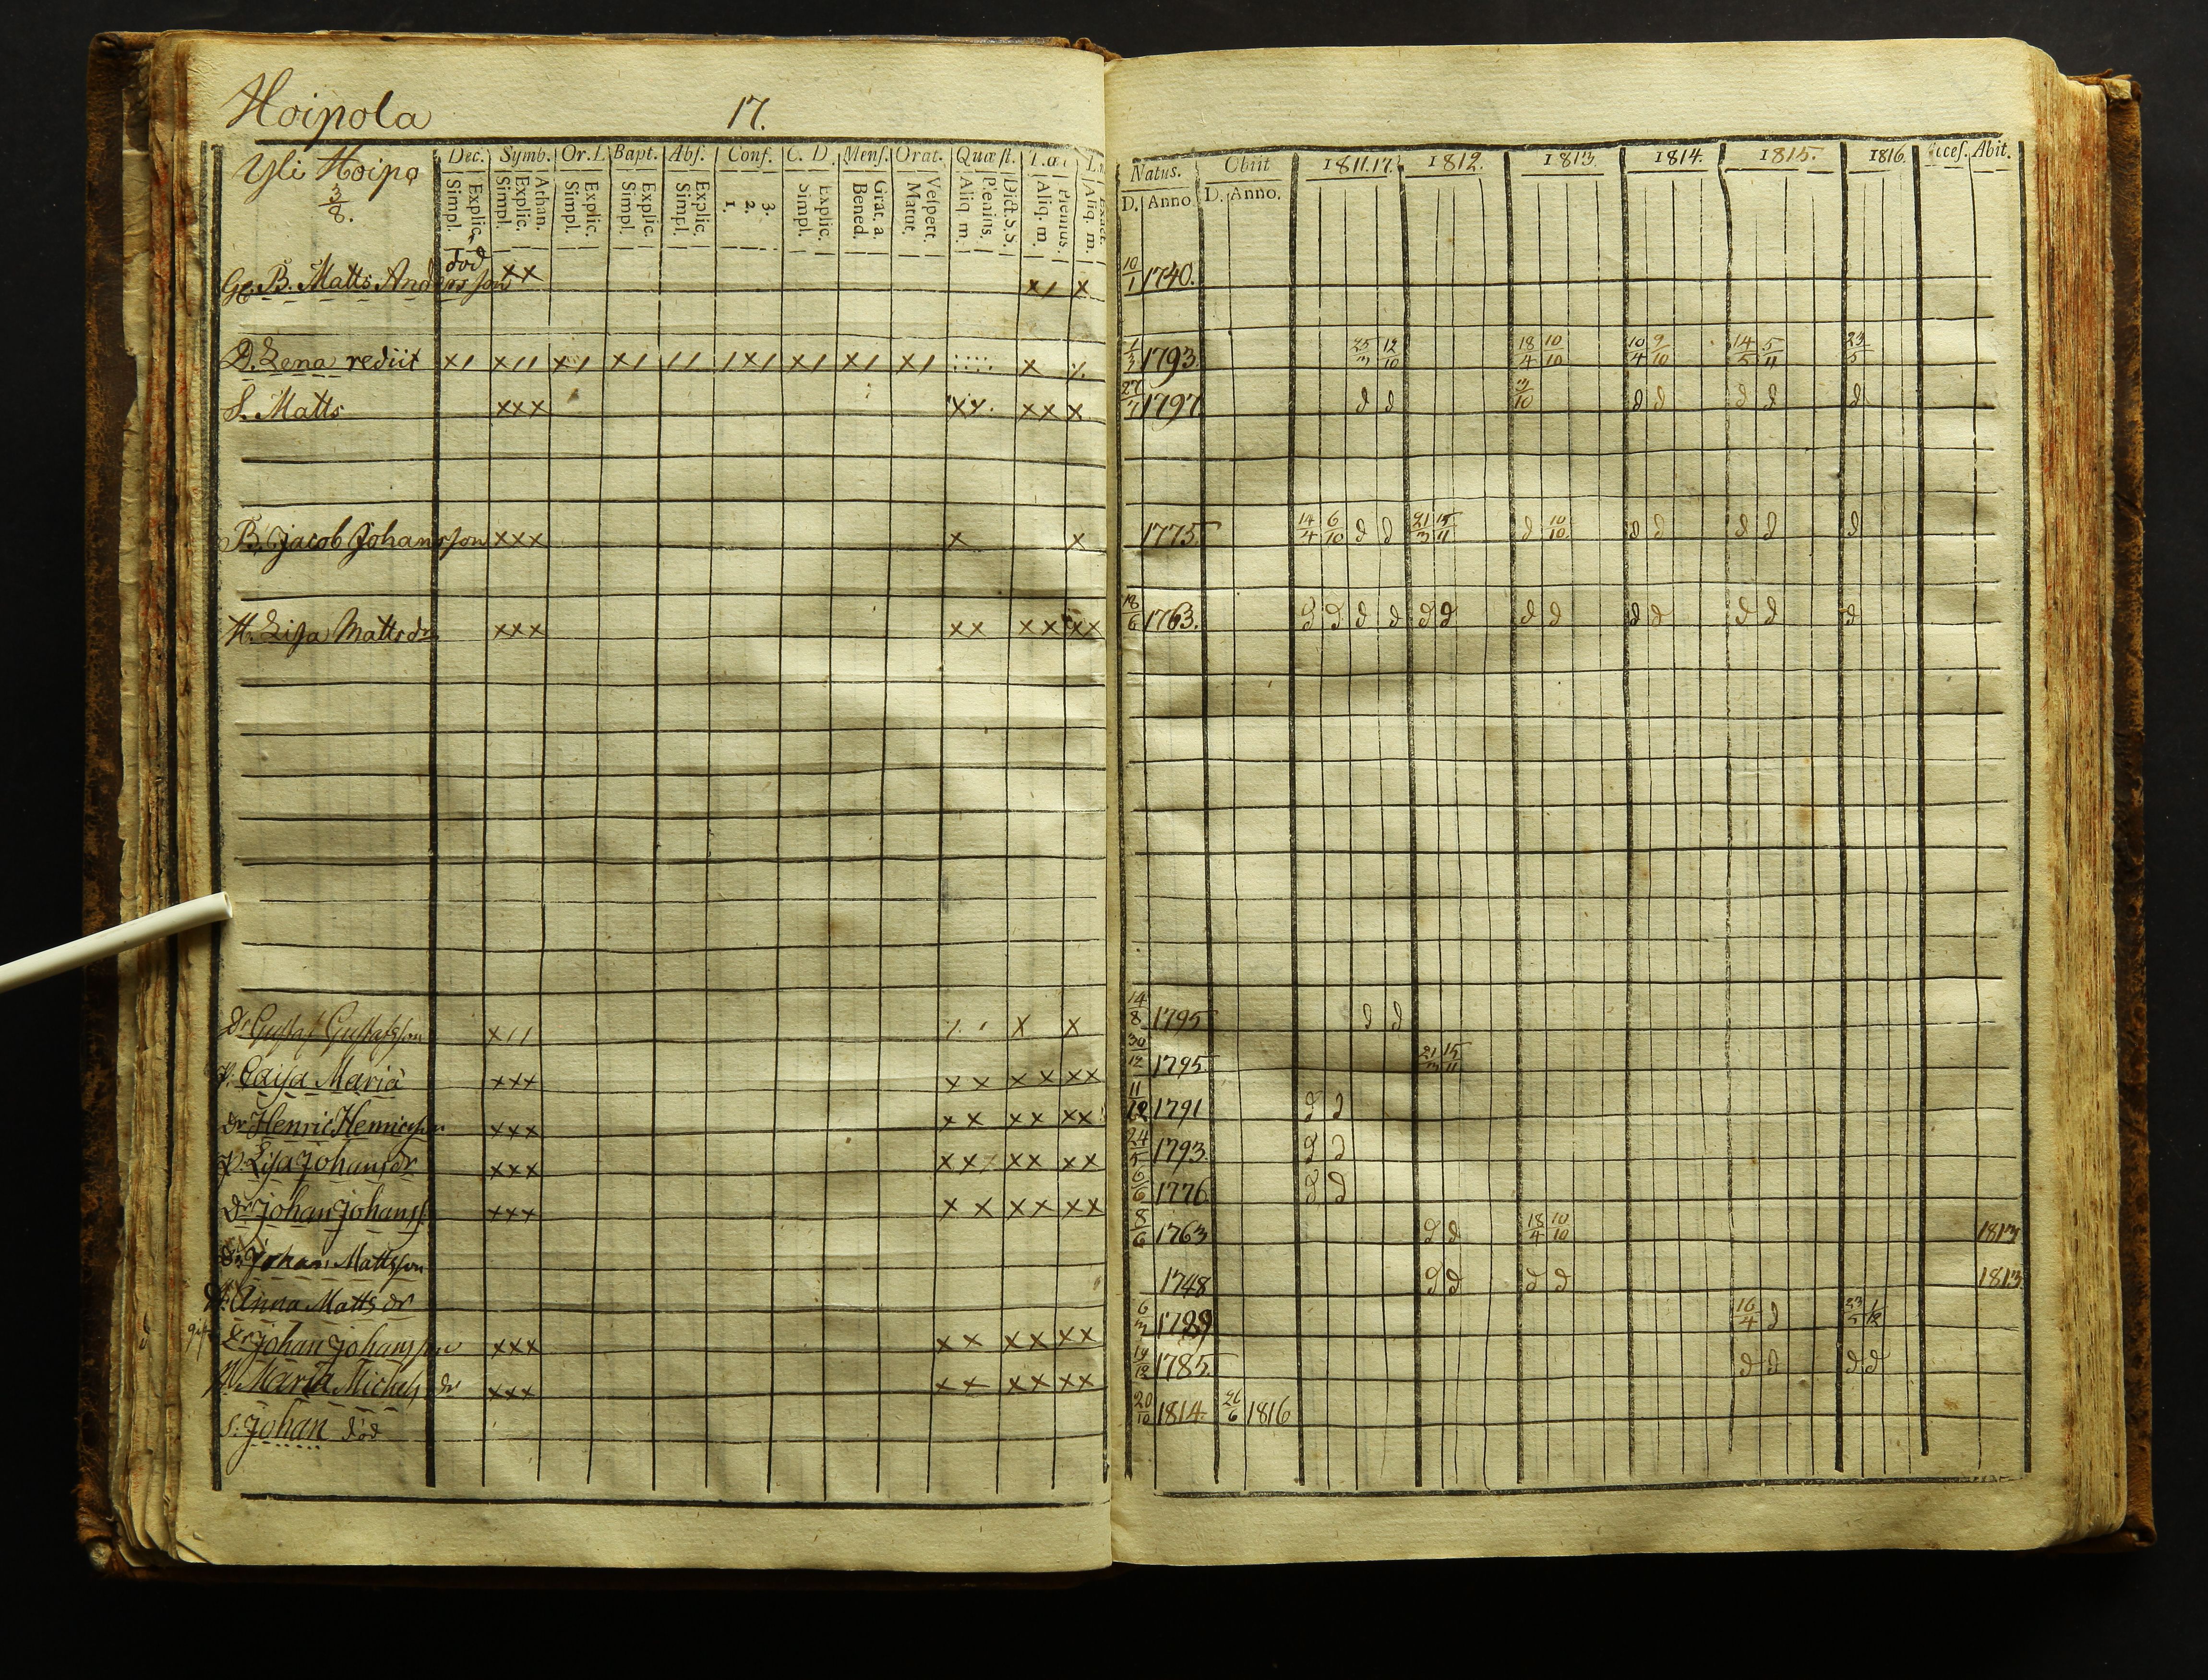 Hoipola 17.
Yli Hoipo Dec. Symb. Or. Bapt. Abs. Conf. C. D. Mens. Orat. Quæst.
3/8. Simpl. Explic. Simpl. Explic. Athan. Simpl. Explic. Simpl. Explic. Simpl. Explic. 1. 2. 3. Simpl. Explic. Bened. Grat. a. Matut. Vespert. Aliq. m. Plenius. Dict. S.S. Aliq. m. Plenius. Aliq. m.
Natus. Obiit 1811. 17. 1812. 1813. 1814. 1815. 1816. Acces. Abit.
D. Anno D. Anno.
död
B. Matts Andersson xx x/ x 10/1 1740.
D. Lena rediit x/ x// x/ x/ // /x/ x/ x/ x/ x 1793. 12/10 18/4 10/10 10/4 9/10 14/5 5/11 23/5
S. Matts xxx xx xx x 27/7 1797 d d 3/10 d d d d d
B. Jacob Johansson xxx x x 1775 14/4 6/10 d d 21/3 15/11 d 10/10 d d d d d
H. Lisa Mattsdr xxx xx xx xx 18/6 1763. d d d d d d d d d d d d d
Dr Gustaf Gustafsson x// x x 14/8 1795 d d
p. Caisa Maria xxx xx xx xx 30/12 1795 21/3 15/11
Dr Henric Henricsson xxx xx xx xx 11/12 1791 d d
p. Lisa Johansdr xxx xxx xx xx 24/5 1793. d d
Dr Johan Johanss xxx xx xx xx 6/6 1776 d d
Dr Johan Mattsson 8/6 1763 d d 18/4 10/10 1813
H. Anna Matts dr 1748 d d d d 1813
Dr Johan Johansson xxx xx xx xx 6/3 1789 16/4 d 23/5
Maria Michelsdr xxx xx xx xx 14/12 1785. d d d d
S. Johan död 20/10 1814 26/6 1816